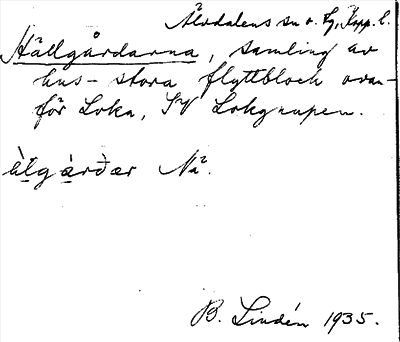 Älvdalens sn o. tg, Kopp. l.
Hällgårdarna, samling av
hus-stora flyttblock ovan-
för Loka, SV Lokgnupen.
Nä².
B. Lindén 1935.